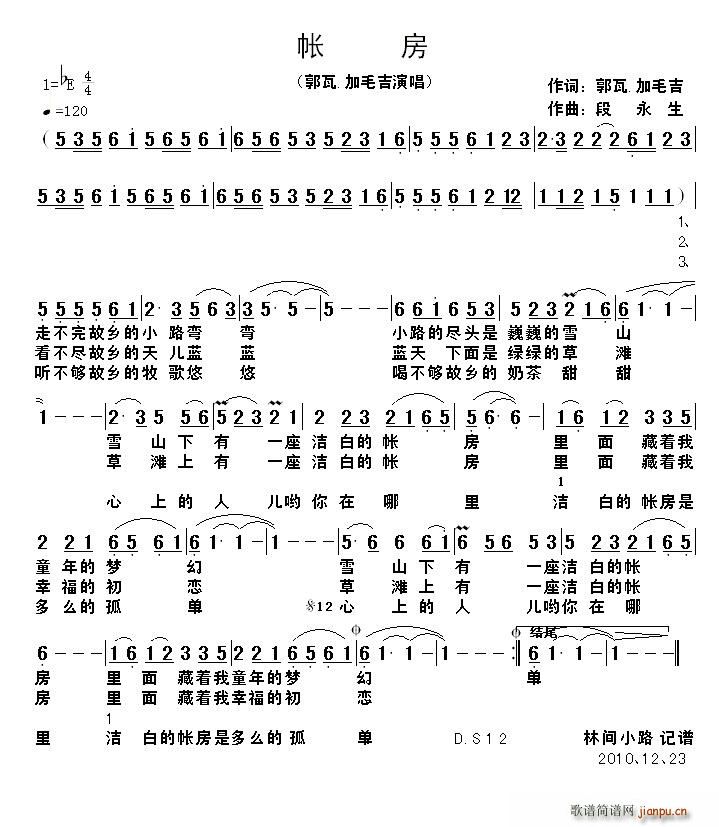 帐 房
1=♭E 4/4
（郭瓦.加毛吉演唱）
作词：郭瓦.加毛吉
♩=120
作曲：段 永 生
( 5 3 5 6 1 5 6 5 6 1 | 6 5 6 5 3 5 3 2 3 1 6 | 5 5 5 5 6 1 2 3 | 2·3 2 2 2 6 1 2 3 |
5 3 5 6 1 5 6 5 6 1 | 6 5 6 5 3 5 3 2 3 1 6 | 5 5 5 5 6 1 2 12 | 1 1 2 1 5 1 1 1 )
1、
2、
3、
5 5 5 5 6 1 | 2· 3 5 6 3 | 3 5· 5 - | 5 - - - | 6 6 1 6 5 3 | 5 2 3 2 1 6 | 6 1· 1 -
走不完故乡的小 路弯 弯 小路的尽头是 巍巍的雪 山
看不尽故乡的天 儿蓝 蓝 蓝天 下面是 绿绿的草 滩
听不够故乡的牧 歌悠 悠 喝不够故乡的 奶茶 甜 甜
1 - - - | 2· 3 5 5 6 | 5 2 3 2 1 | 2 2 3 2 1 6 5 | 5 6· 6 - | 1 6 1 2 3 3 5
雪 山下 有 一座洁 白的 帐 房 里 面 藏着我
草 滩上 有 一座洁 白的 帐 房 里 面 藏着我
1
心 上的 人 儿哟你 在 哪 里 洁 白的 帐房是
2 2 1 6 5 6 1 | 6 1· 1 - | 1 - - - | 5· 6 6 6 1 | 6 5 6 5 3 | 5 2 3 2 1 6 5
童 年的 梦 幻 雪 山下 有 一座洁 白的 帐
幸 福的 初 恋 草 滩上 有 一座洁 白的 帐
多 么的 孤 单 𝄋12 心 上的 人 儿哟你 在 哪
6 - - - | 1 6 1 2 3 3 5 | 2 2 1 6 5 6 1 | 6 1· 1 - | 1 - - - :| 结尾 6 1· 1 - | 1 - - - ‖
房 里 面 藏着我童年的 梦 幻 单
房 里 面 藏着我幸福的 初 恋
1
里 洁 白的帐房是多么的 孤 单 D.S12 林间小路 记谱
2010.12.23
歌谱简谱网
jianpu.cn